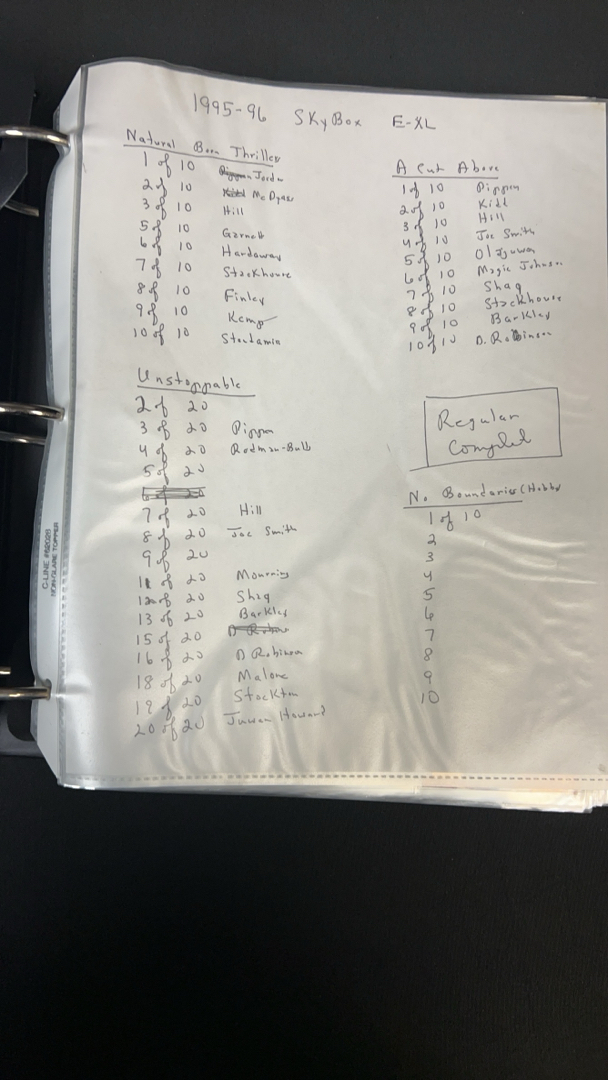 1995-96 SKyBox E-XL
Natural Born Thriller
1 of 10 Jordn
2 of 10 McDyess
3 of 10 Hill
5 of 10 Garnett
6 of 10 Hardaway
7 of 10 Stackhouse
8 of 10 Finley
9 of 10 Kemp
10 of 10 Stoudamire
A Cut Above
1 of 10 Pippen
2 of 10 Kidd
3 of 10 Hill
4 of 10 Joe Smith
5 of 10 Olajuwon
6 of 10 Magic Johnson
7 of 10 Shaq
8 of 10 Stackhouse
9 of 10 Barkley
10 of 10 D. Robinson
Unstoppable
2 of 20
3 of 20 Pippen
4 of 20 Rodman-Bulls
5 of 20
6 of 20
7 of 20 Hill
8 of 20 Joe Smith
9 of 20
11 of 20 Mourning
12 of 20 Shaq
13 of 20 Barkley
15 of 20
16 of 20 D Robinson
18 of 20 Malone
19 of 20 Stockton
20 of 20 Juwan Howard
Regular
Complet
No Boundaries (Hobby
1 of 10
2
3
4
5
6
7
8
9
10
C-LINE
NON-GLARE TOPPER